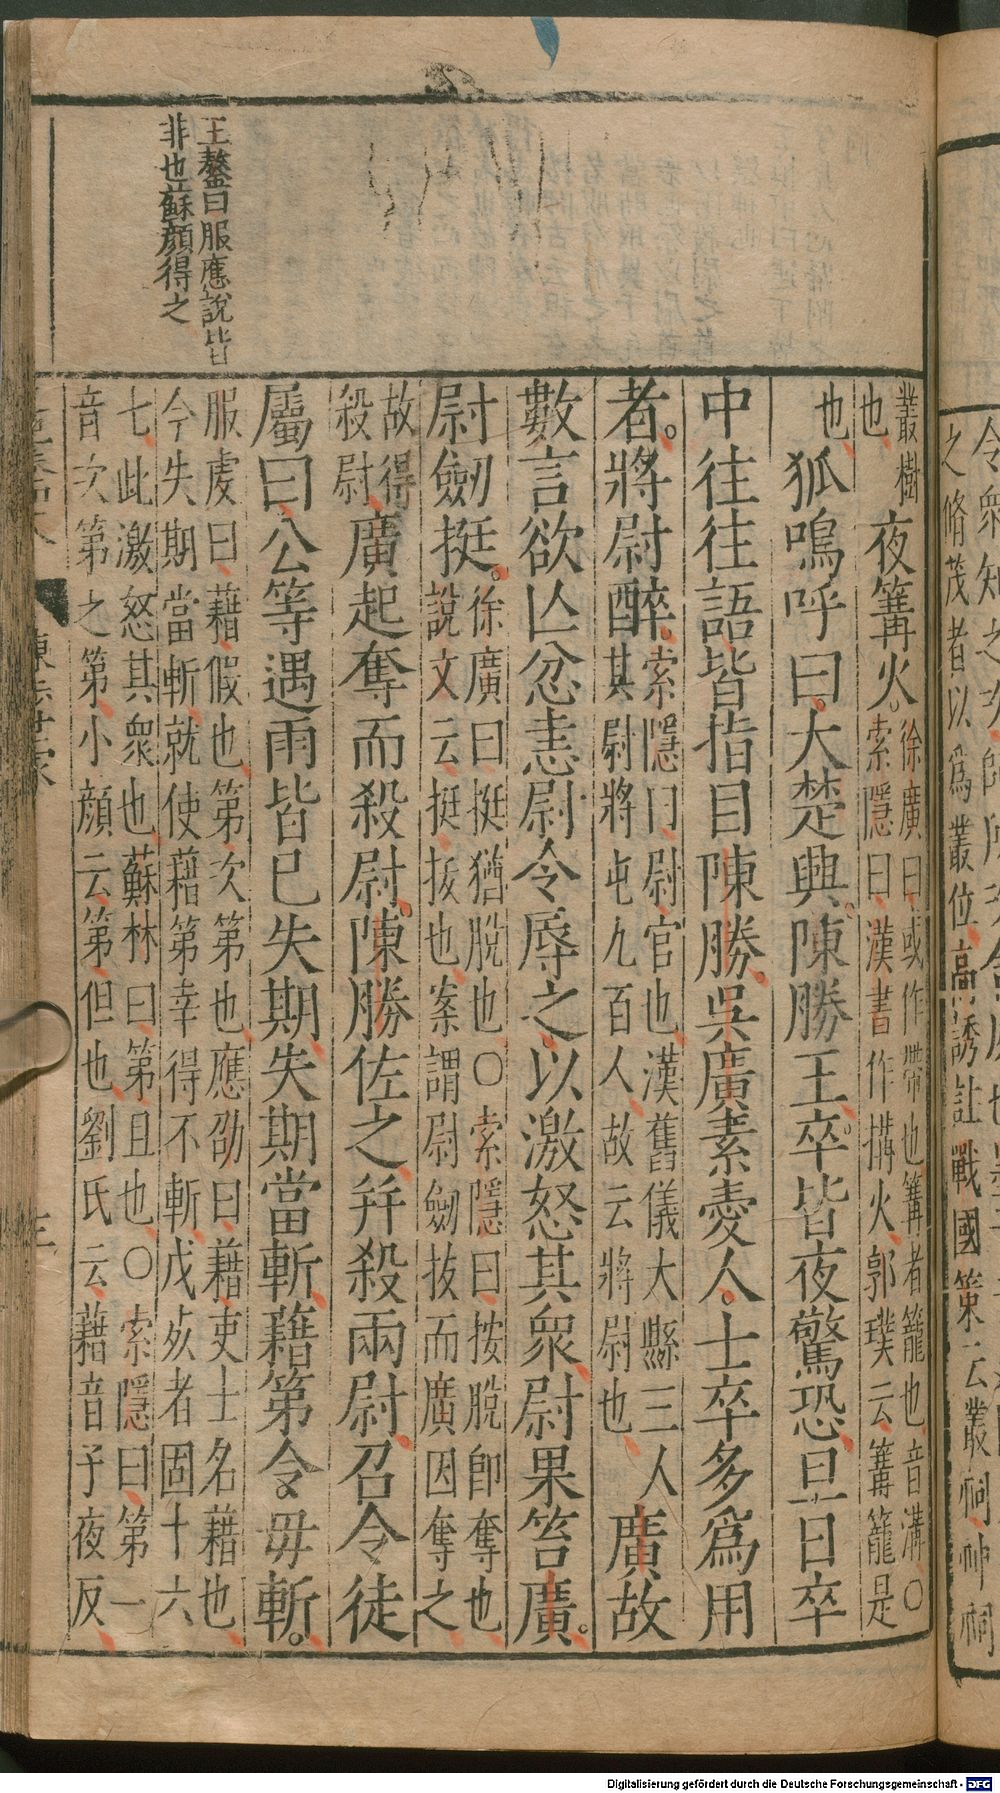 令衆知之
之脩茂者以爲叢位高誘註戰國策云叢祠神祠
王鏊曰服應說皆
非也蘇顔得之
叢樹
也
夜篝火
徐廣曰或作帶也篝者籠也音溝〇
索隱曰漢書作搆火郭璞云篝籠是
也狐鳴呼曰大楚興陳勝王卒皆夜驚恐旦日卒
中往往語皆指目陳勝吳廣素愛人士卒多爲用
者將尉醉
索隱曰尉官也漢舊儀大縣三人
其尉將屯九百人故云將尉也
廣故
數言欲亾忿恚尉令辱之以激怒其衆尉果笞廣
尉劒挺
徐廣曰挺猶脫也〇索隱曰按脫卽奪也
說文云挺拔也案謂尉劒拔而廣因奪之
故得
殺尉
廣起奪而殺尉陳勝佐之并殺兩尉召令徒
屬曰公等遇雨皆已失期失期當斬藉第令毋斬
服虔曰藉假也第次第也應劭曰藉吏士名藉也
今失期當斬就使藉第幸得不斬戍死者固十六
七此激怒其衆也蘇林曰第且也〇索隱曰第一
音次第之第小顔云第但也劉氏云藉音子夜反
三
Digitalisierung gefördert durch die Deutsche Forschungsgemeinschaft - DFG